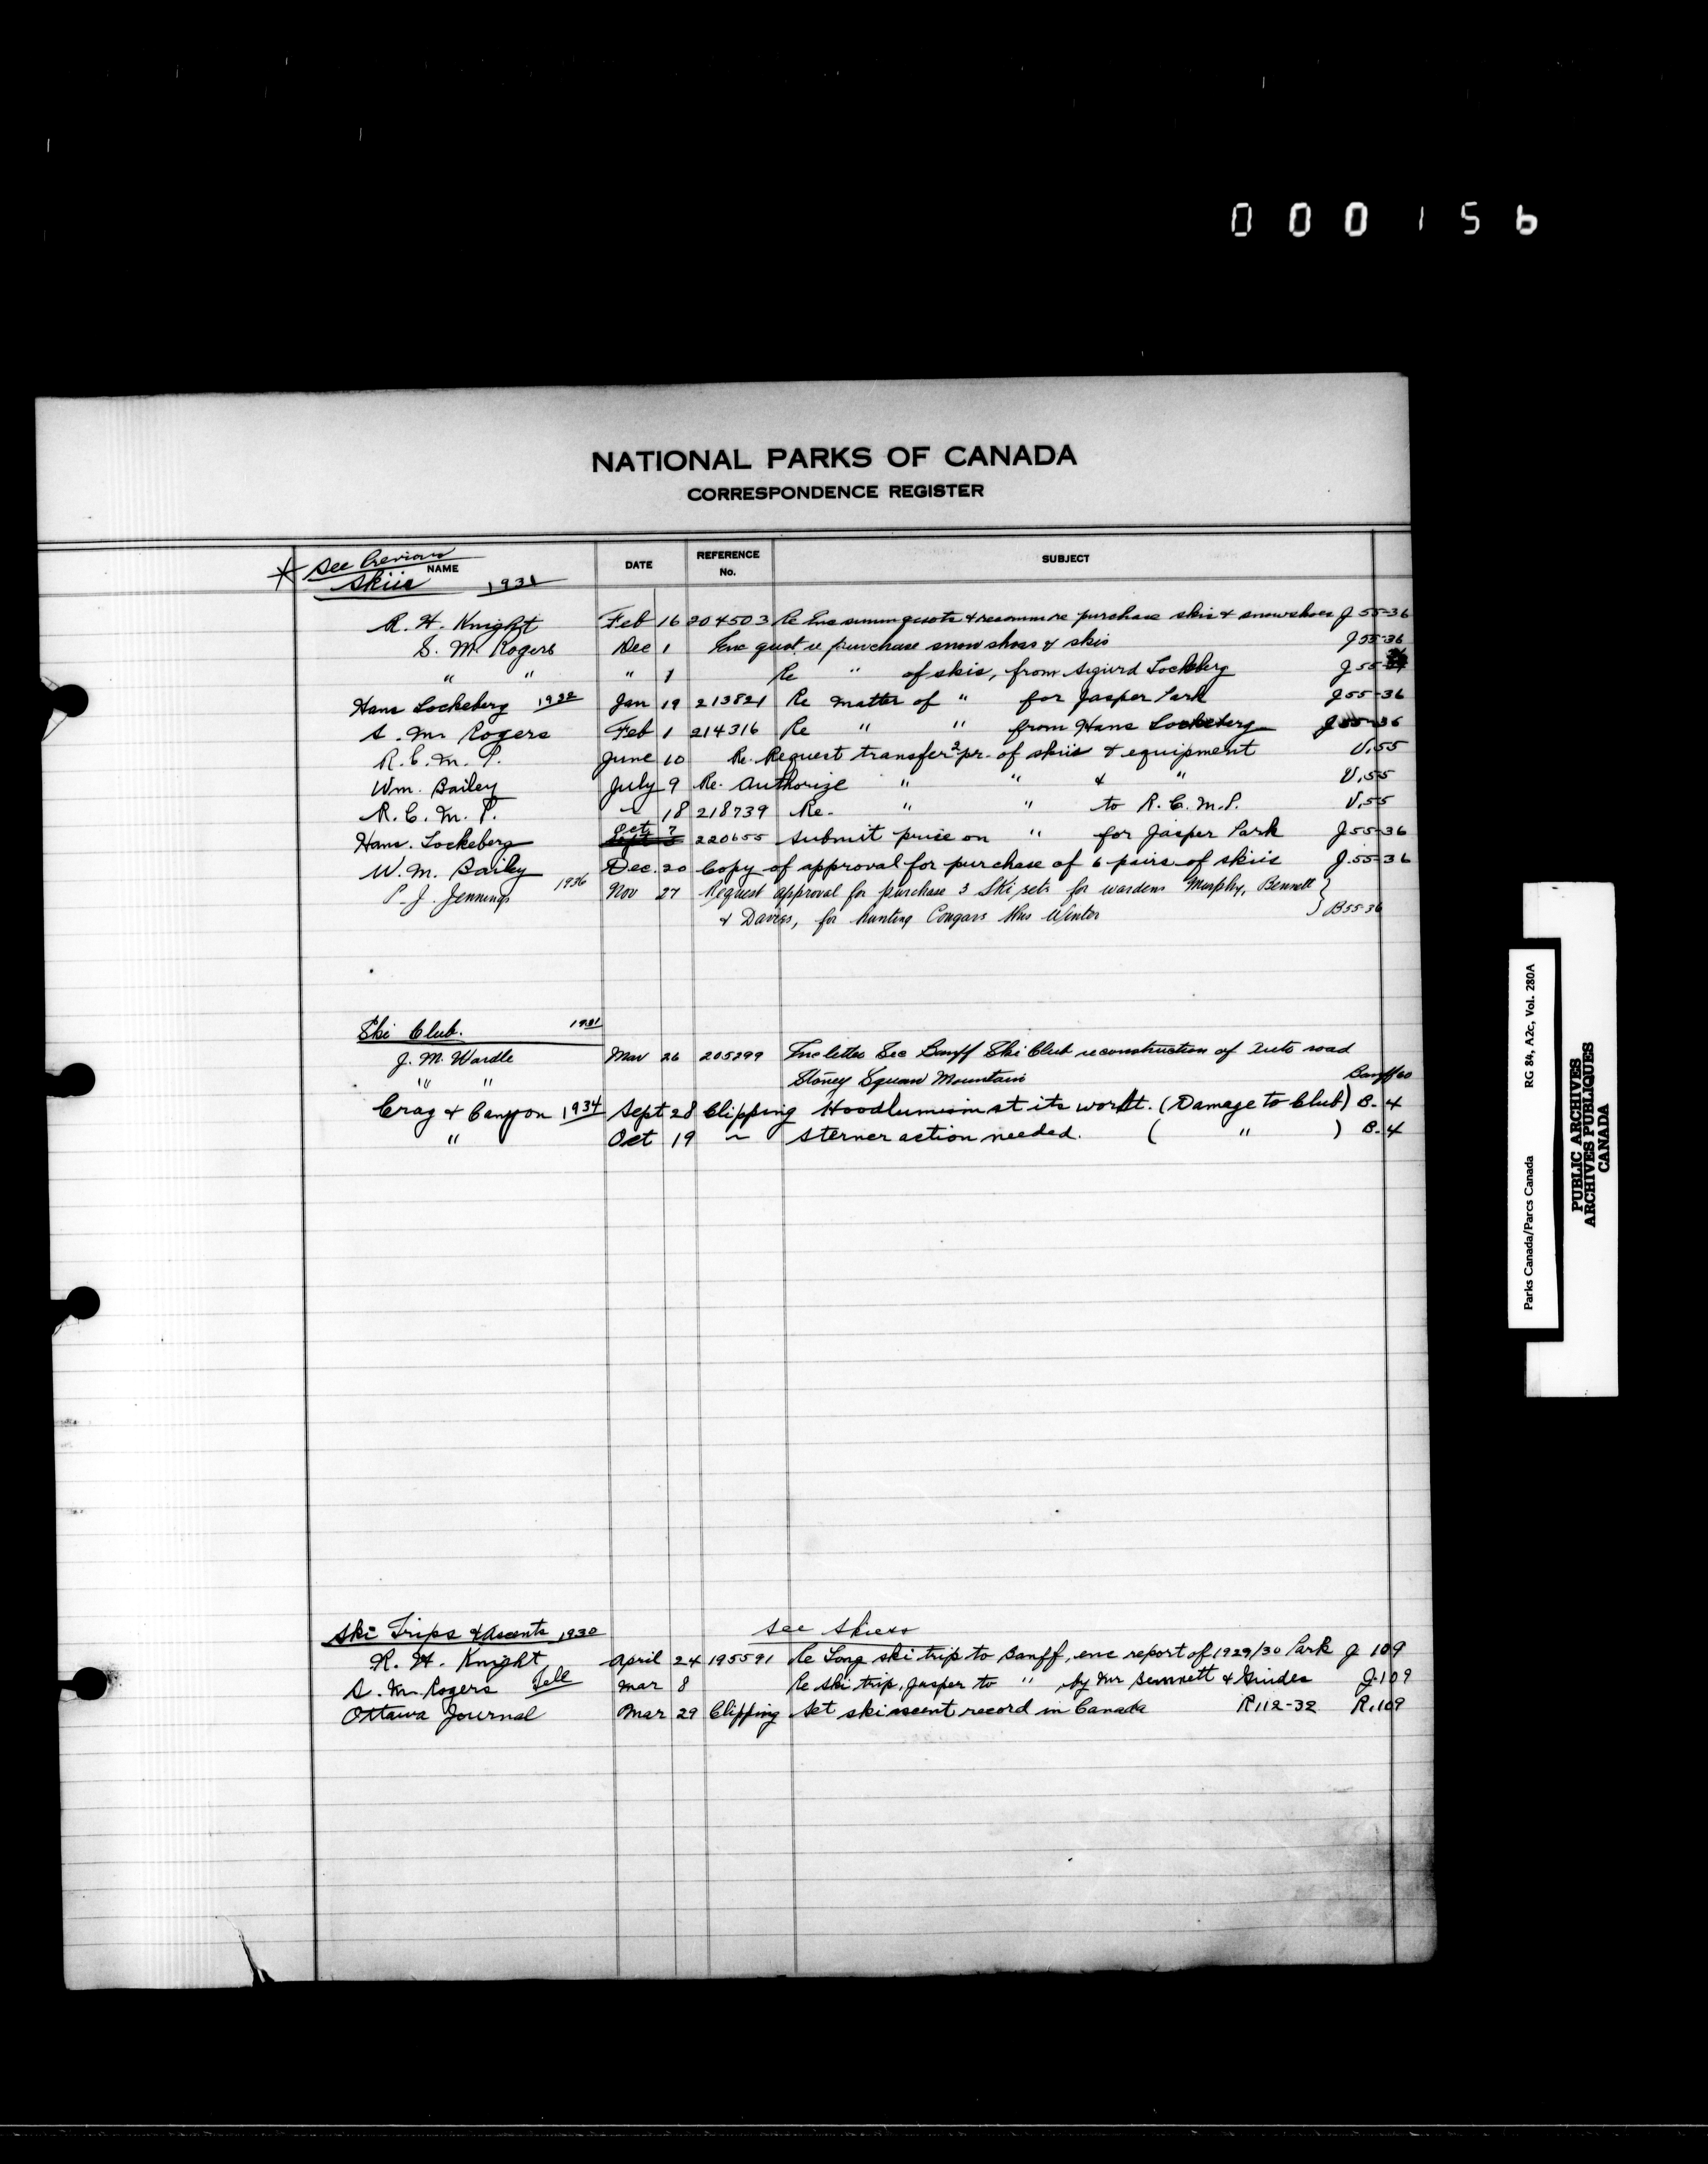 000156
NATIONAL PARKS OF CANADA
CORRESPONDENCE REGISTER
See Previous
NAME DATE REFERENCE No. SUBJECT
Skiis 1931
R. H. Knight Feb 16 204503 Re Enc summ quots & recomm re purchase skis & snowshoes J 55-36
S. M. Rogers Dec 1 Enc quot. re purchase snow shoes & skis J 55-36
" " " 1 Re " of skis, from Sigurd Lockeberg J 55-
Hans Lockeberg 1932 Jan 19 213821 Re matter of " for Jasper Park J 55-36
S. M. Rogers Feb 1 214316 Re " " from Hans Lockeberg J 55-36
R. C. M. P. June 10 Re. Request transfer 2 pr. of skiis & equipment V.55
Wm. Bailey July 9 Re. Authorize " " & " V.55
R. C. M. P. " 18 218739 Re. " " to R. C. M. P. V.55
Hans. Lockeberg Oct. 7 220655 Submit price on " for Jasper Park J 55-36
W. M. Bailey Dec. 20 Copy of approval for purchase of 6 pairs of skiis J. 55-36
P. J. Jennings 1936 Nov 27 Request approval for purchase 3 Ski sets for wardens Murphy, Bennett
& Davies, for hunting Cougars this Winter B 55-36
Ski Club. 1931
J. M. Wardle Mar 26 205299 Enc letter Sec Banff Ski Club reconstruction of Auto road
" " Stoney Squaw Mountain Banff 60
Crag & Canyon 1934 Sept 28 Clipping Hoodlumism at its worst. (Damage to Club) B. 4
" Oct 19 " Sterner action needed. ( " ) B. 4
Ski Trips & Ascents 1930 See Skiers
R. H. Knight April 24 195591 Re Long ski trip to Banff, enc report of 1929/30 Park J 109
S. M. Rogers Tell Mar 8 Re Ski trip, Jasper to " , by Mr Bennett & Guides J. 109
Ottawa Journal Mar 29 Clipping Set ski ascent record in Canada R 112-32 R. 109
Parks Canada/Parcs Canada RG 84, A2c, Vol. 280A
PUBLIC ARCHIVES
ARCHIVES PUBLIQUES
CANADA